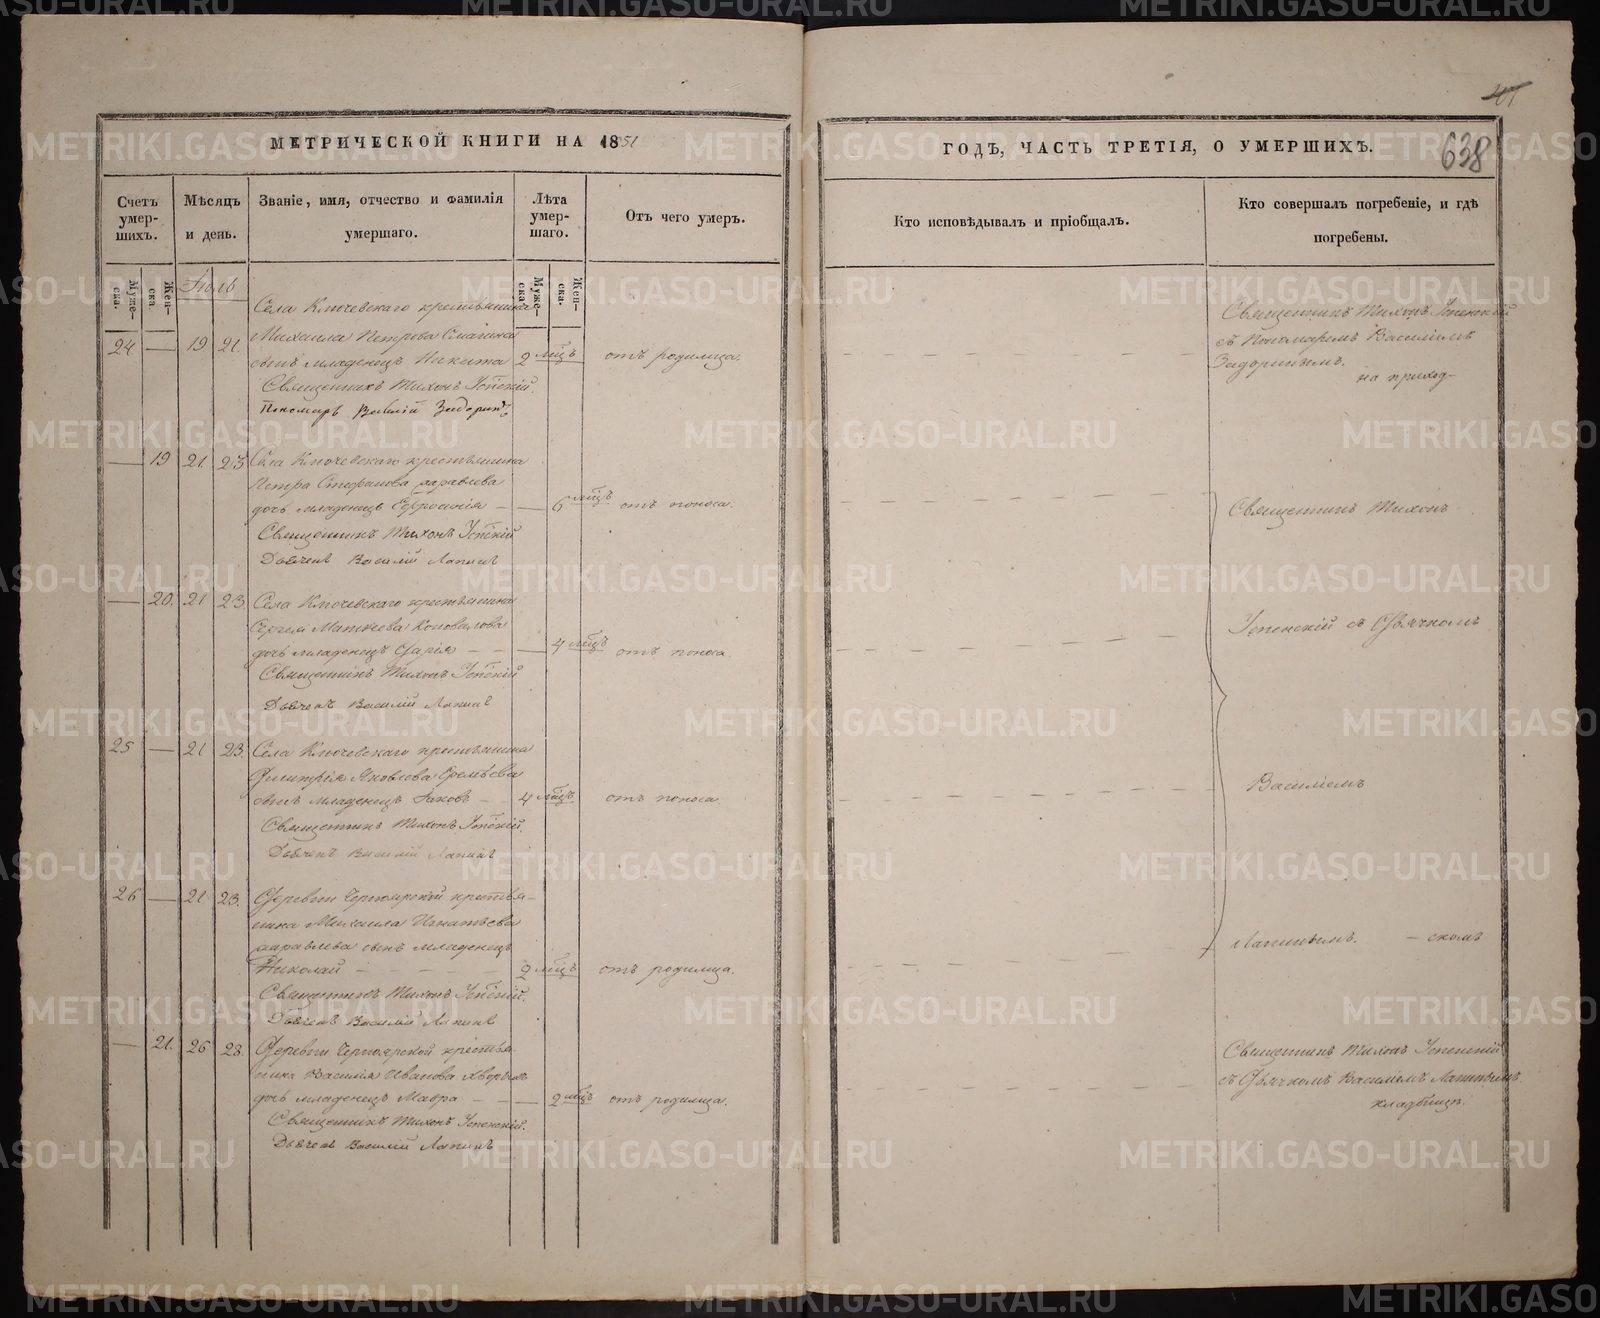 МЕТРИЧЕСКОЙ КНИГИ НА 1851
ГОДЪ, ЧАСТЬ ТРЕТІЯ, О УМЕРШИХЪ.
638
Счетъ умер-шихъ.
Мѣсяцъ и день.
Званіе, имя, отчество и фамилія умершаго.
Лѣта умер-шаго.
Отъ чего умеръ.
Кто исповѣдывалъ и пріобщалъ.
Кто совершалъ погребеніе, и гдѣ погребены.
Муже-ска.
Жен-ска.
Муже-ска.
Жен-ска.
Іюль
Села Ключевскаго крестьянина
24 — 19 21. Михаила Петрова
сынъ младенецъ Никита 2 мѣс. отъ родимца.
Священникъ Тихонъ Успенскій.
Пономарь Василій
Священникъ Тихонъ Успенскій
съ Пономаремъ Василіемъ
на приход-
— 19 21. 23 Села Ключевскаго крестьянина
Петра
дочь младенецъ Евфросинія — — 6 мѣс. отъ поноса.
Священникъ Тихонъ Успенскій
Дьячекъ Василій Лапинъ
Священникъ Тихонъ
— 20. 21 23. Села Ключевскаго крестьянина
Сергея Матвеева Коновалова
дочь младенецъ Дарія — — — 4 мѣс. отъ поноса.
Священникъ Тихонъ Успенскій
Дьячекъ Василій Лапинъ
Успенскій съ Дьячкомъ
25 — 21 23. Села Ключевскаго крестьянина
Димитрія Яковлева Еремѣева
сынъ младенецъ Іаковъ — — 4 мѣс. отъ поноса.
Священникъ Тихонъ Успенскій.
Дьячекъ Василій Лапинъ
Василіемъ
26 — 21 23. Деревни Черноярской крестья-
нина Михаила Игнатьева
сынъ младенецъ
Николай — — — 2 мѣс. отъ родимца.
Священникъ Тихонъ Успенскій.
Дьячекъ Василій Лапинъ
Лапинымъ. — скомъ
— 21. 26 28. Деревни Черноярской крестья-
нина Василія Иванова
дочь младенецъ Мавра — — — 2 мѣс. отъ родимца.
Священникъ Тихонъ Успенскій.
Дьячекъ Василій Лапинъ
Священникъ Тихонъ Успенскій
съ Дьячкомъ Василіемъ Лапинымъ
кладбищѣ.
METRIKI.GASO-URAL.RU